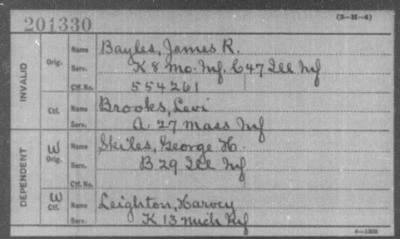 201330
(3-31-6)
INVALID
Orig.
Name Bayles, James R.
Serv. K 8 Mo. Inf. C 47 Ill Inf
Ctf. No. 554261
Ctf.
Name Brooks, Levi
Serv. A. 27 Mass Inf
DEPENDENT
W
Orig.
Name Skiles, George H.
Serv. B 29 Ill Inf
Ctf. No.
W
Ctf.
Name Leighton, Harvey
Serv. K 13 Mich Inf